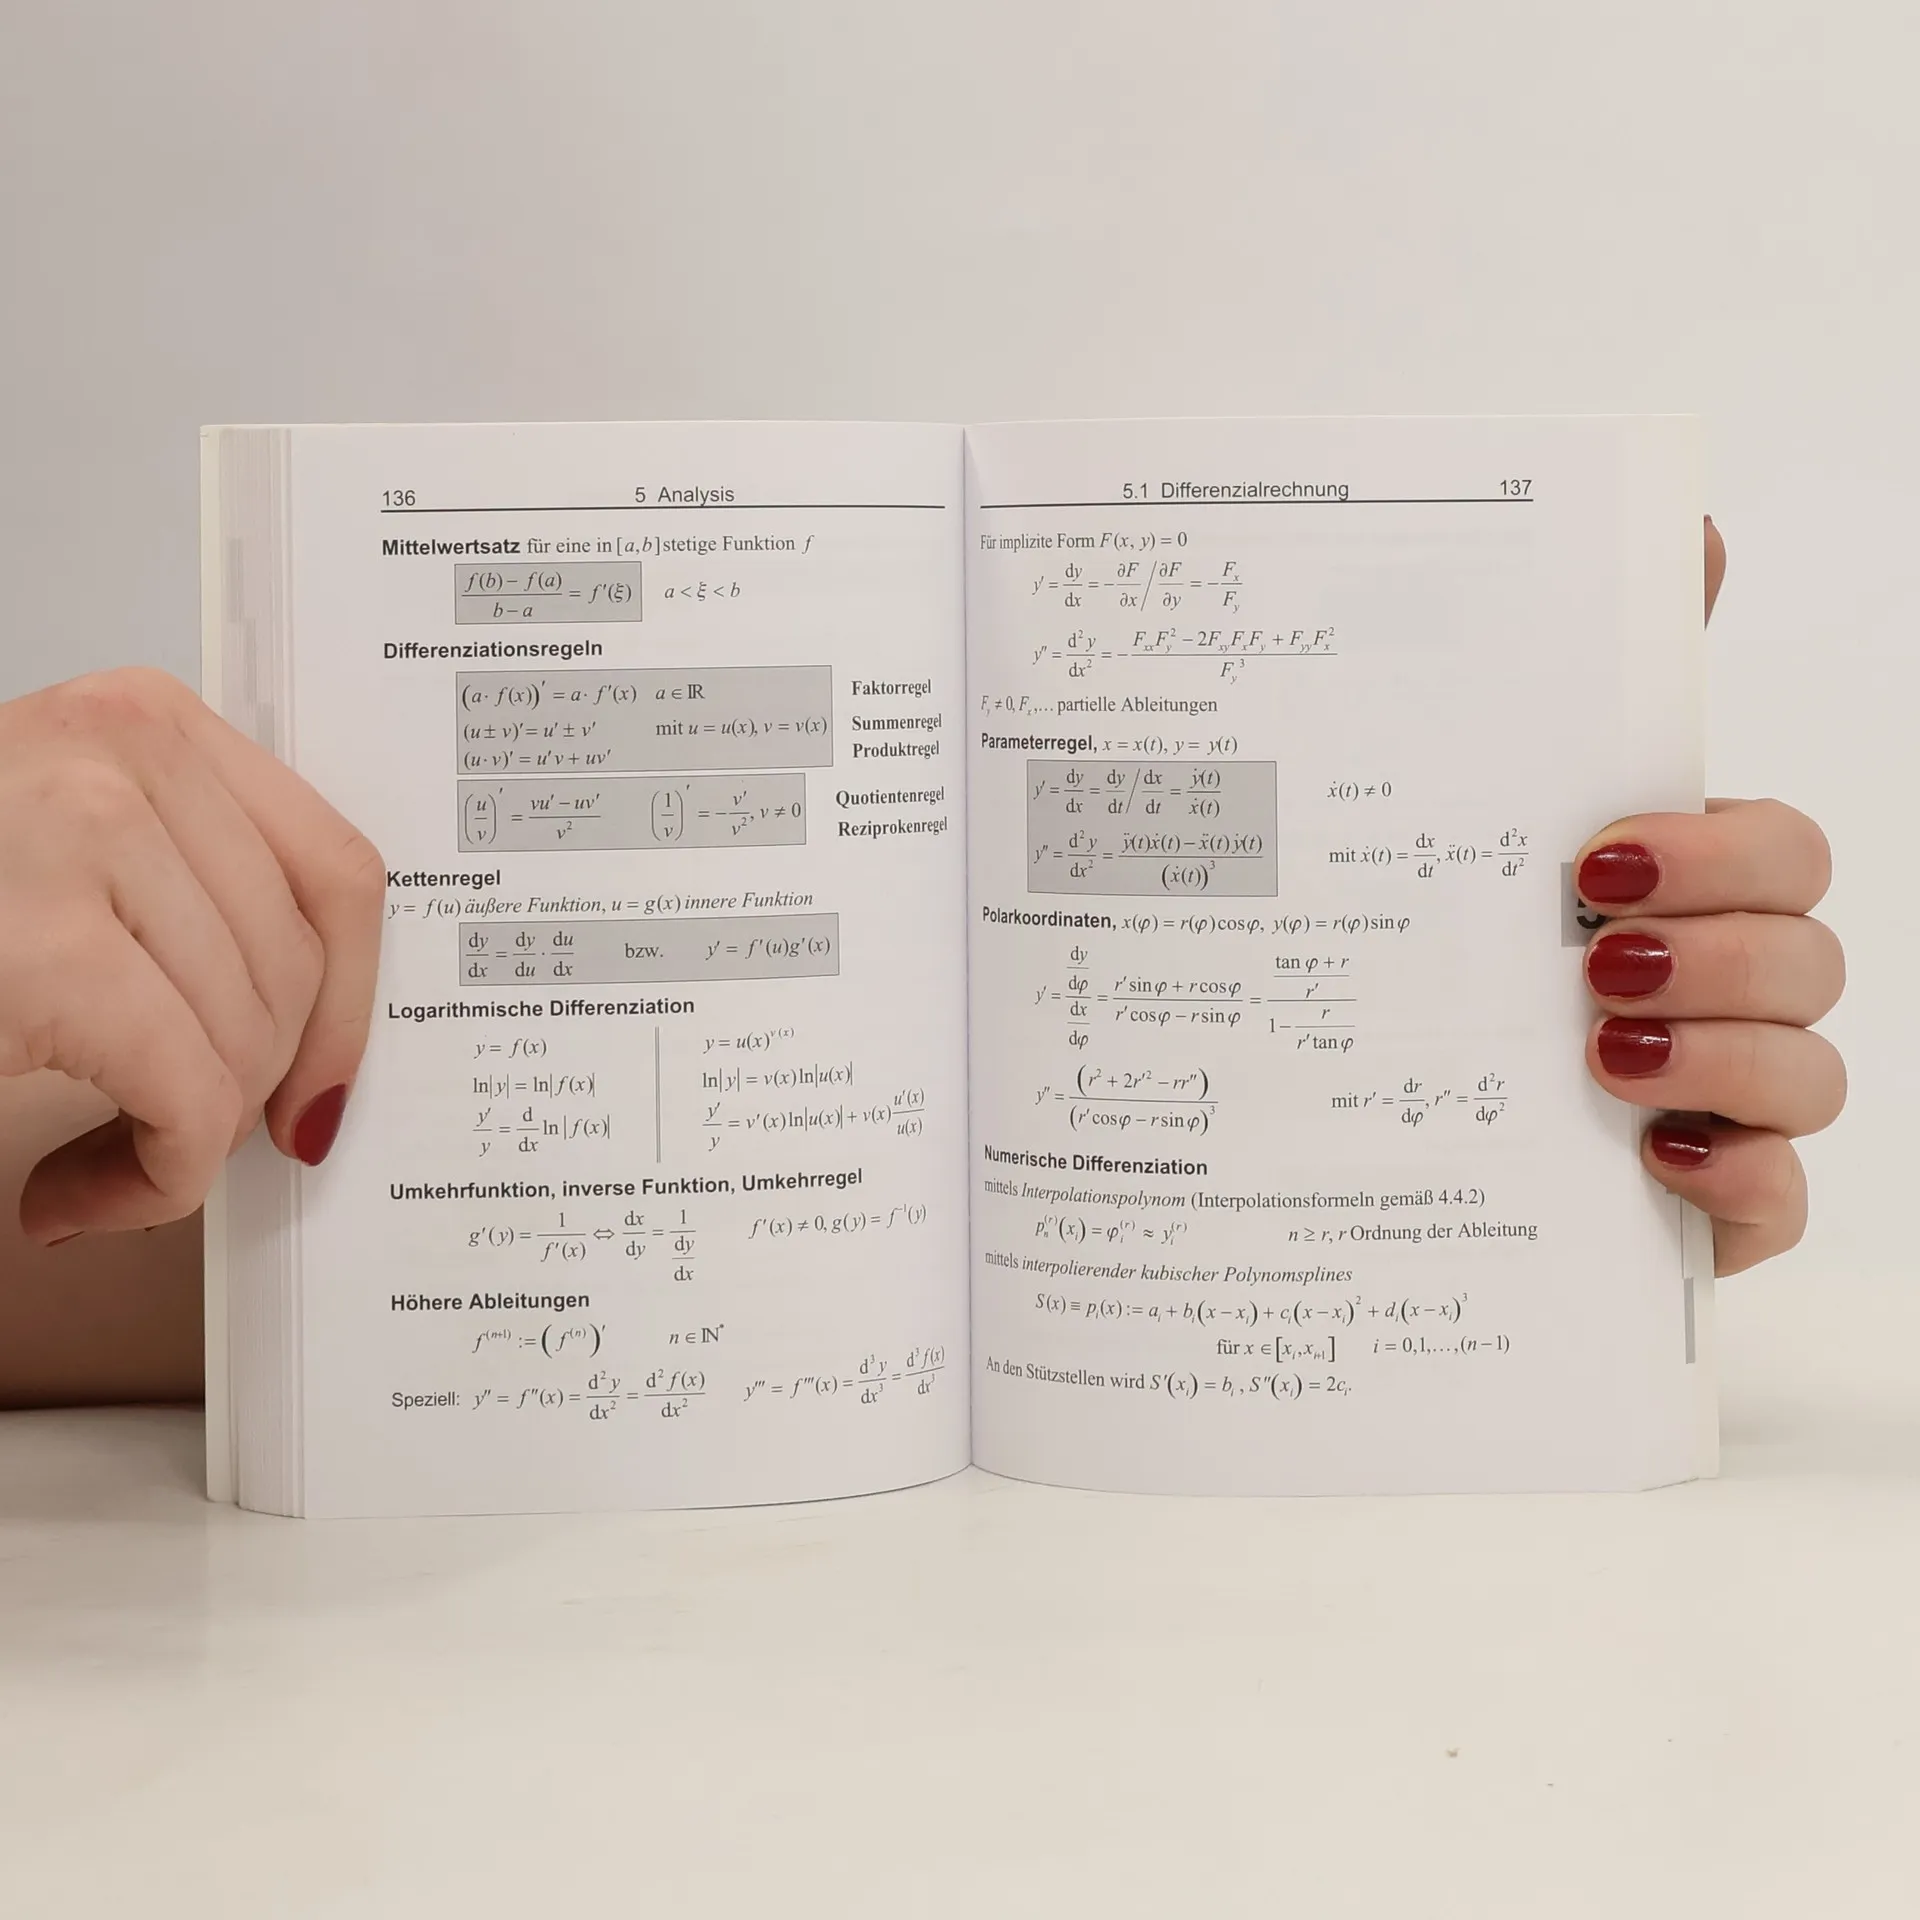 136 5 Analysis
Mittelwertsatz für eine in [a,b] stetige Funktion f
(f(b) – f(a))/(b – a) = f'(ξ) a < ξ < b
Differenziationsregeln
(a· f(x))' = a· f'(x) a ∈ ℝ Faktorregel
(u ± v)' = u' ± v' mit u = u(x), v = v(x) Summenregel
(u·v)' = u'v + uv' Produktregel
(u/v)' = (vu' – uv')/v² (1/v)' = –v'/v², v ≠ 0 Quotientenregel
Reziprokenregel
Kettenregel
y = f(u) äußere Funktion, u = g(x) innere Funktion
dy/dx = dy/du · du/dx bzw. y' = f'(u)g'(x)
Logarithmische Differenziation
y = f(x) y = u(x)^v(x)
ln|y| = ln|f(x)| ln|y| = v(x)ln|u(x)|
y'/y = d/dx ln|f(x)| y'/y = v'(x)ln|u(x)| + v(x) u'(x)/u(x)
Umkehrfunktion, inverse Funktion, Umkehrregel
g'(y) = 1/f'(x) ⇔ dx/dy = 1/(dy/dx) f'(x) ≠ 0, g(y) = f⁻¹(y)
Höhere Ableitungen
f^(n+1) := (f^(n))' n ∈ ℕ*
Speziell: y'' = f''(x) = d²y/dx² = d²f(x)/dx² y''' = f'''(x) = d³y/dx³ = d³f(x)/dx³
5.1 Differenzialrechnung 137
Für implizite Form F(x, y) = 0
y' = dy/dx = –∂F/∂x / ∂F/∂y = –F_x/F_y
y'' = d²y/dx² = –(F_xx F_y² – 2F_xy F_x F_y + F_yy F_x²)/F_y³
F_y ≠ 0, F_x,... partielle Ableitungen
Parameterregel, x = x(t), y = y(t)
y' = dy/dx = dy/dt / dx/dt = ẏ(t)/ẋ(t) ẋ(t) ≠ 0
y'' = d²y/dx² = (ÿ(t)ẋ(t) – ẍ(t)ẏ(t))/(ẋ(t))³ mit ẋ(t) = dx/dt, ẍ(t) = d²x/dt²
Polarkoordinaten, x(φ) = r(φ)cosφ, y(φ) = r(φ)sinφ
y' = (dy/dφ)/(dx/dφ) = (r'sinφ + rcosφ)/(r'cosφ – rsinφ) = ((tan φ + r)/r')/(1 – r/(r'tanφ))
y'' = (r² + 2r'² – rr'')/(r'cosφ – rsinφ)³ mit r' = dr/dφ, r'' = d²r/dφ²
Numerische Differenziation
mittels Interpolationspolynom (Interpolationsformeln gemäß 4.4.2)
p_n^(r)(x_i) = φ_i^(r) ≈ y_i^(r) n ≥ r, r Ordnung der Ableitung
mittels interpolierender kubischer Polynomsplines
S(x) ≡ p_i(x) := a_i + b_i(x – x_i) + c_i(x – x_i)² + d_i(x – x_i)³
für x ∈ [x_i, x_i+1] i = 0,1,...,(n – 1)
An den Stützstellen wird S'(x_i) = b_i , S''(x_i) = 2c_i.
5